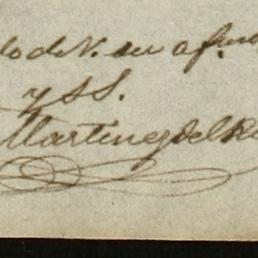 lo de V. su afmo
y S S.
Martinez del R